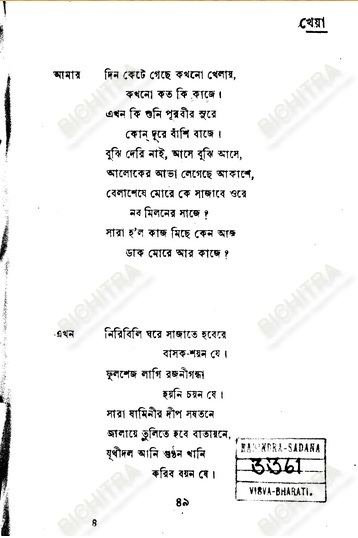 খেয়া
আমার দিন কেটে গেছে কখনো খেলায়,
কখনো কত কি কাজে।
এখন কি শুনি পূরবীর সুরে
কোন্ দূরে বাঁশি বাজে।
বুঝি দেরি নাই, আসে বুঝি আসে,
আলোকের আভা লেগেছে আকাশে,
বেলাশেষে মোরে কে সাজাবে ওরে
নব মিলনের সাজে ?
সারা হ'ল কাজ মিছে কেন আজ
ডাক মোরে আর কাজে ?
এখন নিরিবিলি ঘরে সাজাতে হবেরে
বাসক-শয়ন যে।
ফুলশেজ লাগি রজনীগন্ধা
হয়নি চয়ন যে।
সারা যামিনীর দীপ সযতনে
জ্বালায়ে তুলিতে হবে বাতায়নে,
যূথীদল আনি গুণ্ঠন খানি
করিব বয়ন যে।
RABINDRA-SADANA
3361
VISVA-BHARATI.
৪৯
৪
BICHITRA